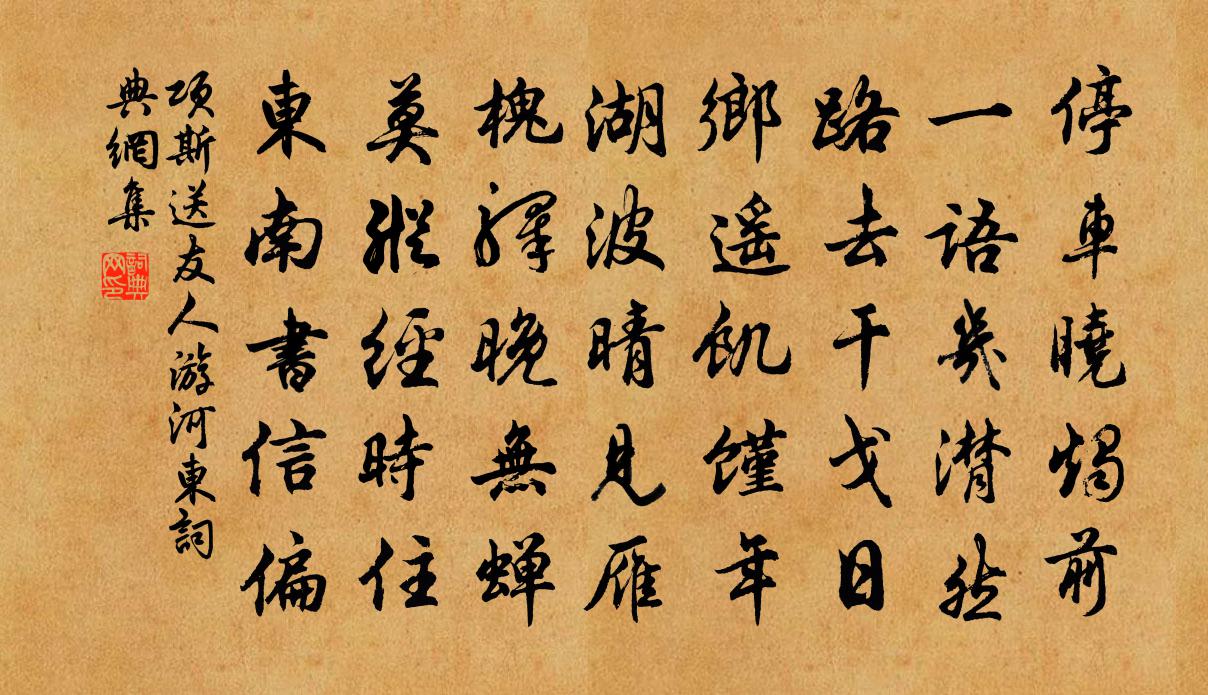 停車曉燭前
一語幾潸然
路去干戈日
鄉遥飢饉年
湖波晴見雁
槐驛晚無蝉
莫縱經時住
東南書信偏
項斯送友人游河東詞
典網集
詞典網印